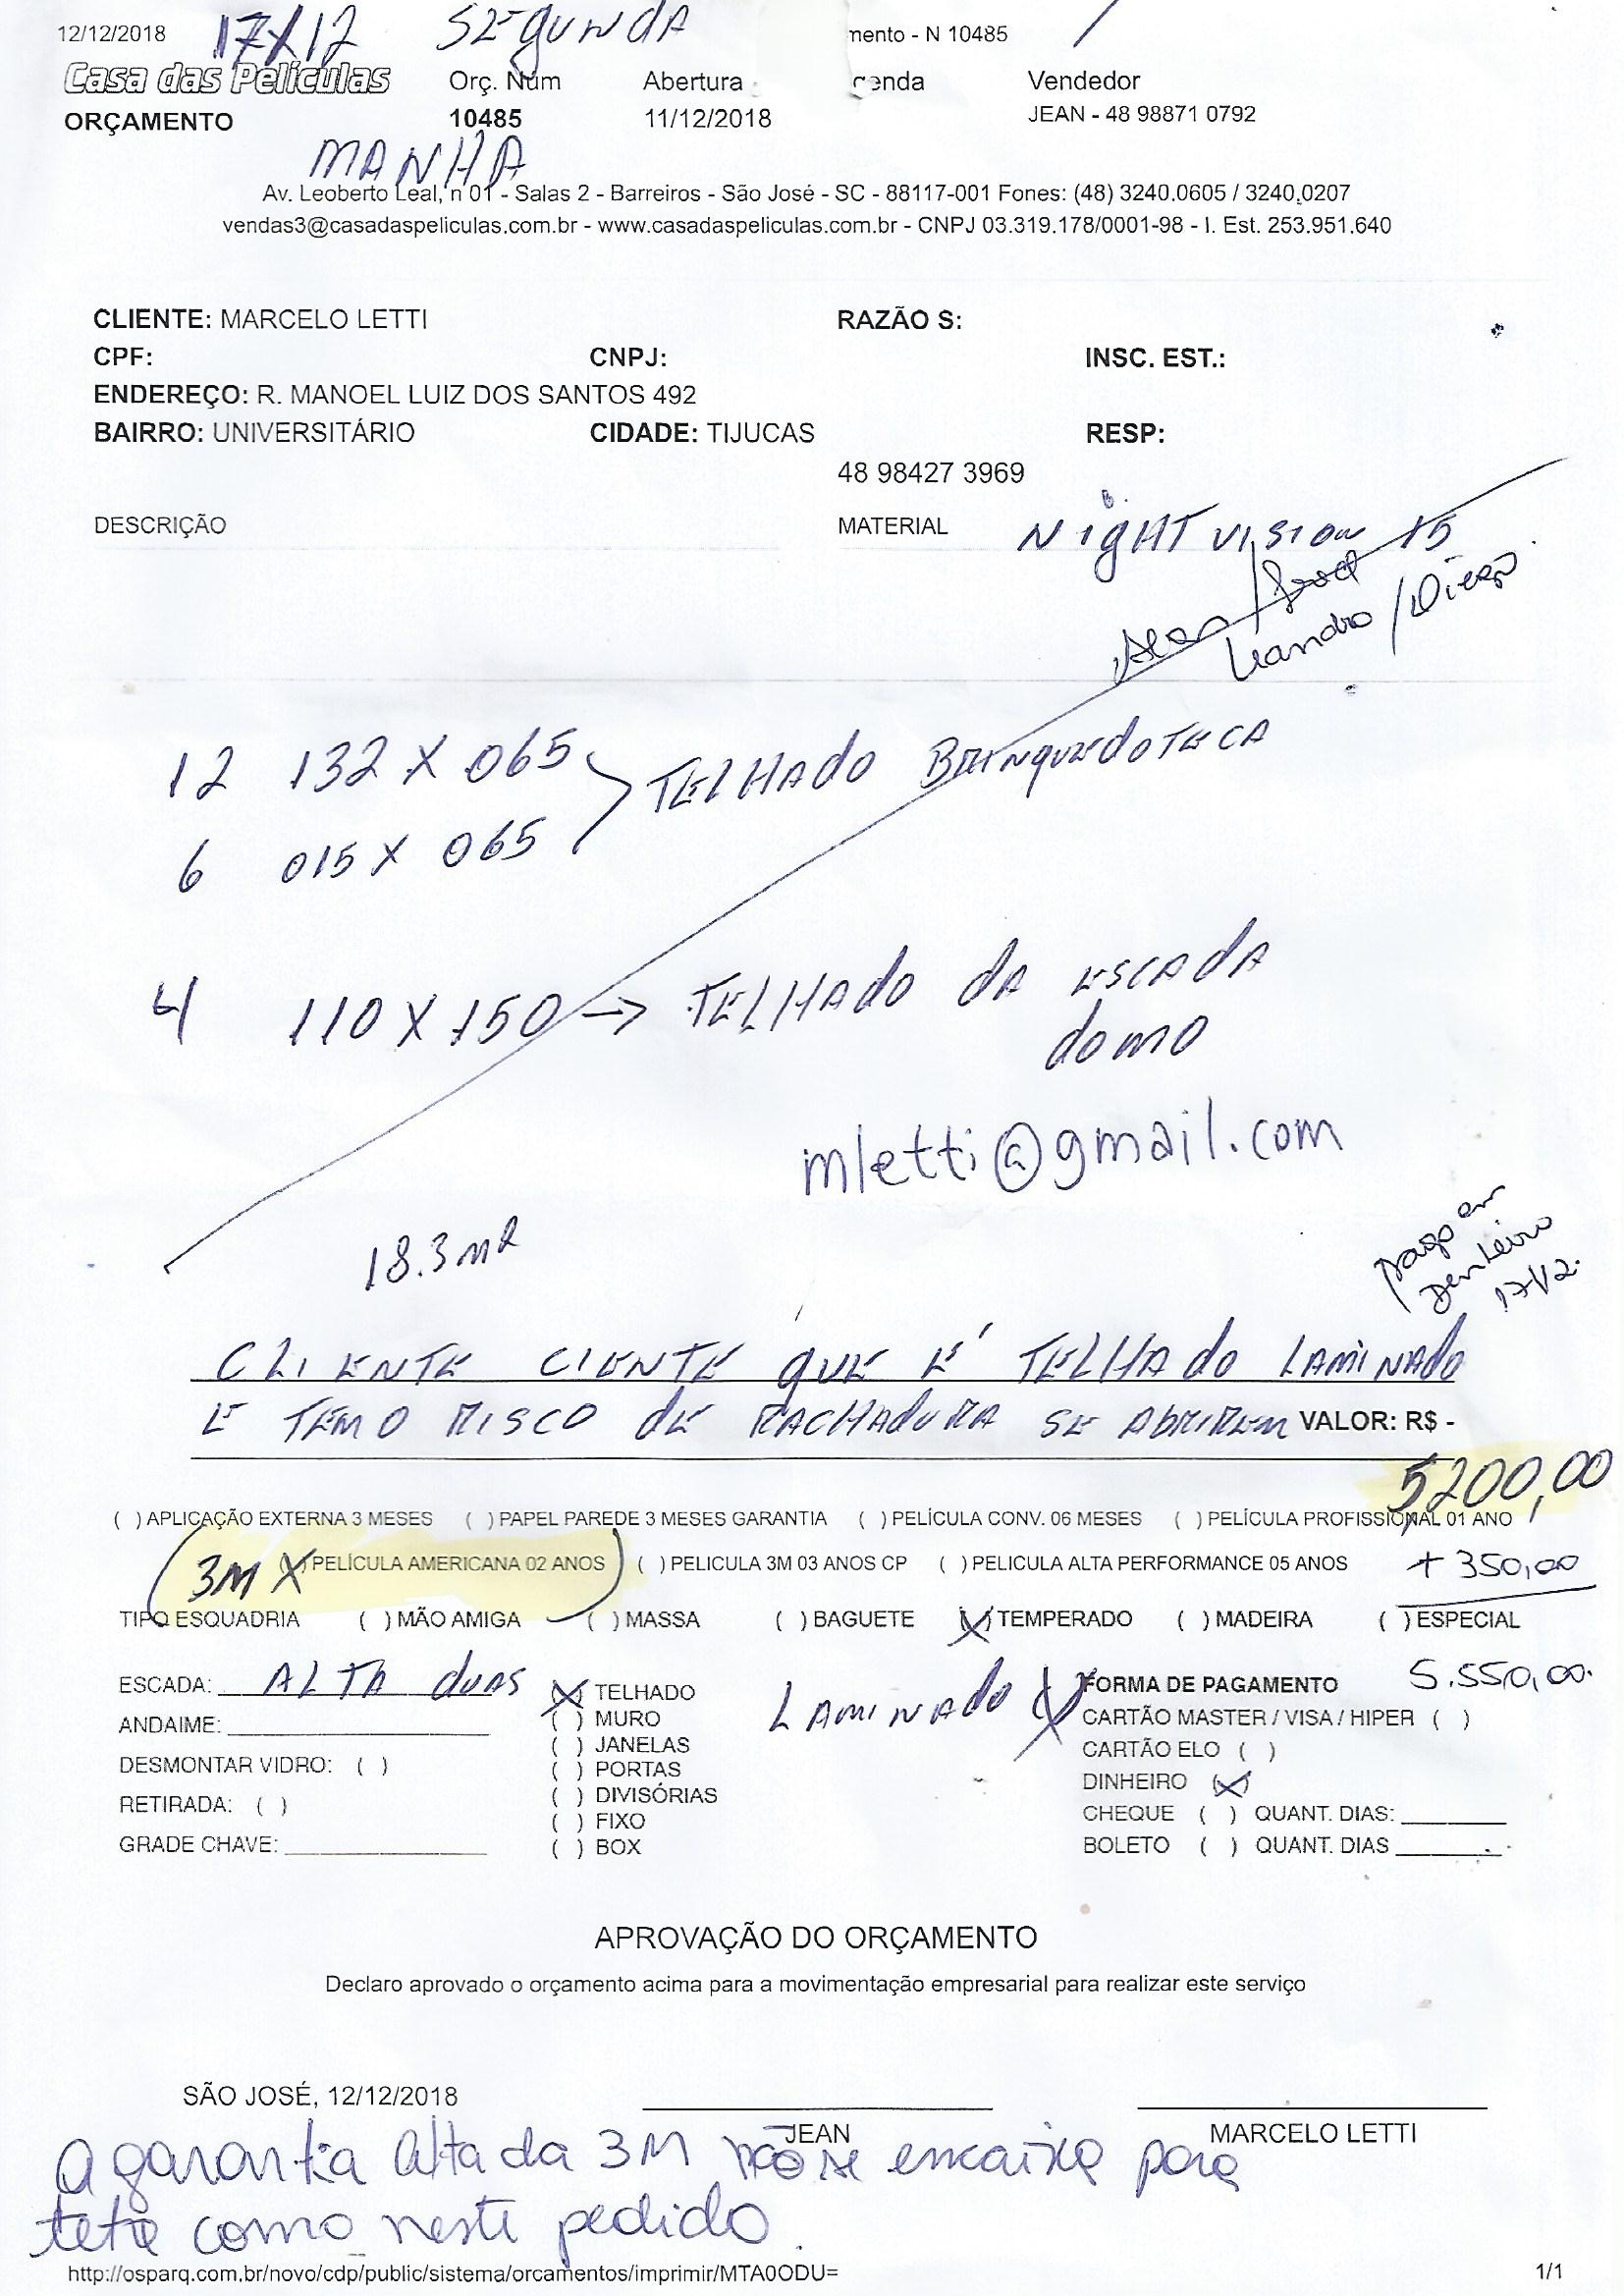 12/12/2018 17/12 SEGUNDA mento - N 10485
Casa das Películas Orç. Núm Abertura enda Vendedor
ORÇAMENTO 10485 11/12/2018 JEAN - 48 98871 0792
MANHA
Av. Leoberto Leal, n 01 - Salas 2 - Barreiros - São José - SC - 88117-001 Fones: (48) 3240.0605 / 3240.0207
vendas3@casadaspeliculas.com.br - www.casadaspeliculas.com.br - CNPJ 03.319.178/0001-98 - I. Est. 253.951.640
CLIENTE: MARCELO LETTI RAZÃO S:
CPF: CNPJ: INSC. EST.:
ENDEREÇO: R. MANOEL LUIZ DOS SANTOS 492
BAIRRO: UNIVERSITÁRIO CIDADE: TIJUCAS RESP:
48 98427 3969
DESCRIÇÃO MATERIAL NIGHT VISION 15
Leandro / Diego
12 132 X 065 TELHADO BRINQUEDOTECA
6 015 X 065
4 110 X 150 → TELHADO DA ESCADA
DOMO
mletti@gmail.com
18.3 m2
pago em
Dinheiro
17/12.
CLIENTE CIENTE QUE É TELHADO LAMINADO
E TEMO RISCO DE RACHADURA SE ABRIREM VALOR: R$ -
5200,00
( ) APLICAÇÃO EXTERNA 3 MESES ( ) PAPEL PAREDE 3 MESES GARANTIA ( ) PELÍCULA CONV. 06 MESES ( ) PELÍCULA PROFISSIONAL 01 ANO
3M (X) PELÍCULA AMERICANA 02 ANOS ( ) PELICULA 3M 03 ANOS CP ( ) PELICULA ALTA PERFORMANCE 05 ANOS + 350,00
TIPO ESQUADRIA ( ) MÃO AMIGA ( ) MASSA ( ) BAGUETE (X) TEMPERADO ( ) MADEIRA ( ) ESPECIAL
ESCADA: ALTA DUAS (X) TELHADO LAMINADO (X) FORMA DE PAGAMENTO 5.550,00.
ANDAIME: ( ) MURO CARTÃO MASTER / VISA / HIPER ( )
( ) JANELAS CARTÃO ELO ( )
DESMONTAR VIDRO: ( ) ( ) PORTAS DINHEIRO (X)
RETIRADA: ( ) ( ) DIVISÓRIAS CHEQUE ( ) QUANT. DIAS:
( ) FIXO
GRADE CHAVE: ( ) BOX BOLETO ( ) QUANT. DIAS
APROVAÇÃO DO ORÇAMENTO
Declaro aprovado o orçamento acima para a movimentação empresarial para realizar este serviço
SÃO JOSÉ, 12/12/2018
JEAN MARCELO LETTI
A garantia alta da 3M não se encaixa para
teto como neste pedido
http://osparq.com.br/novo/cdp/public/sistema/orcamentos/imprimir/MTA0ODU= 1/1